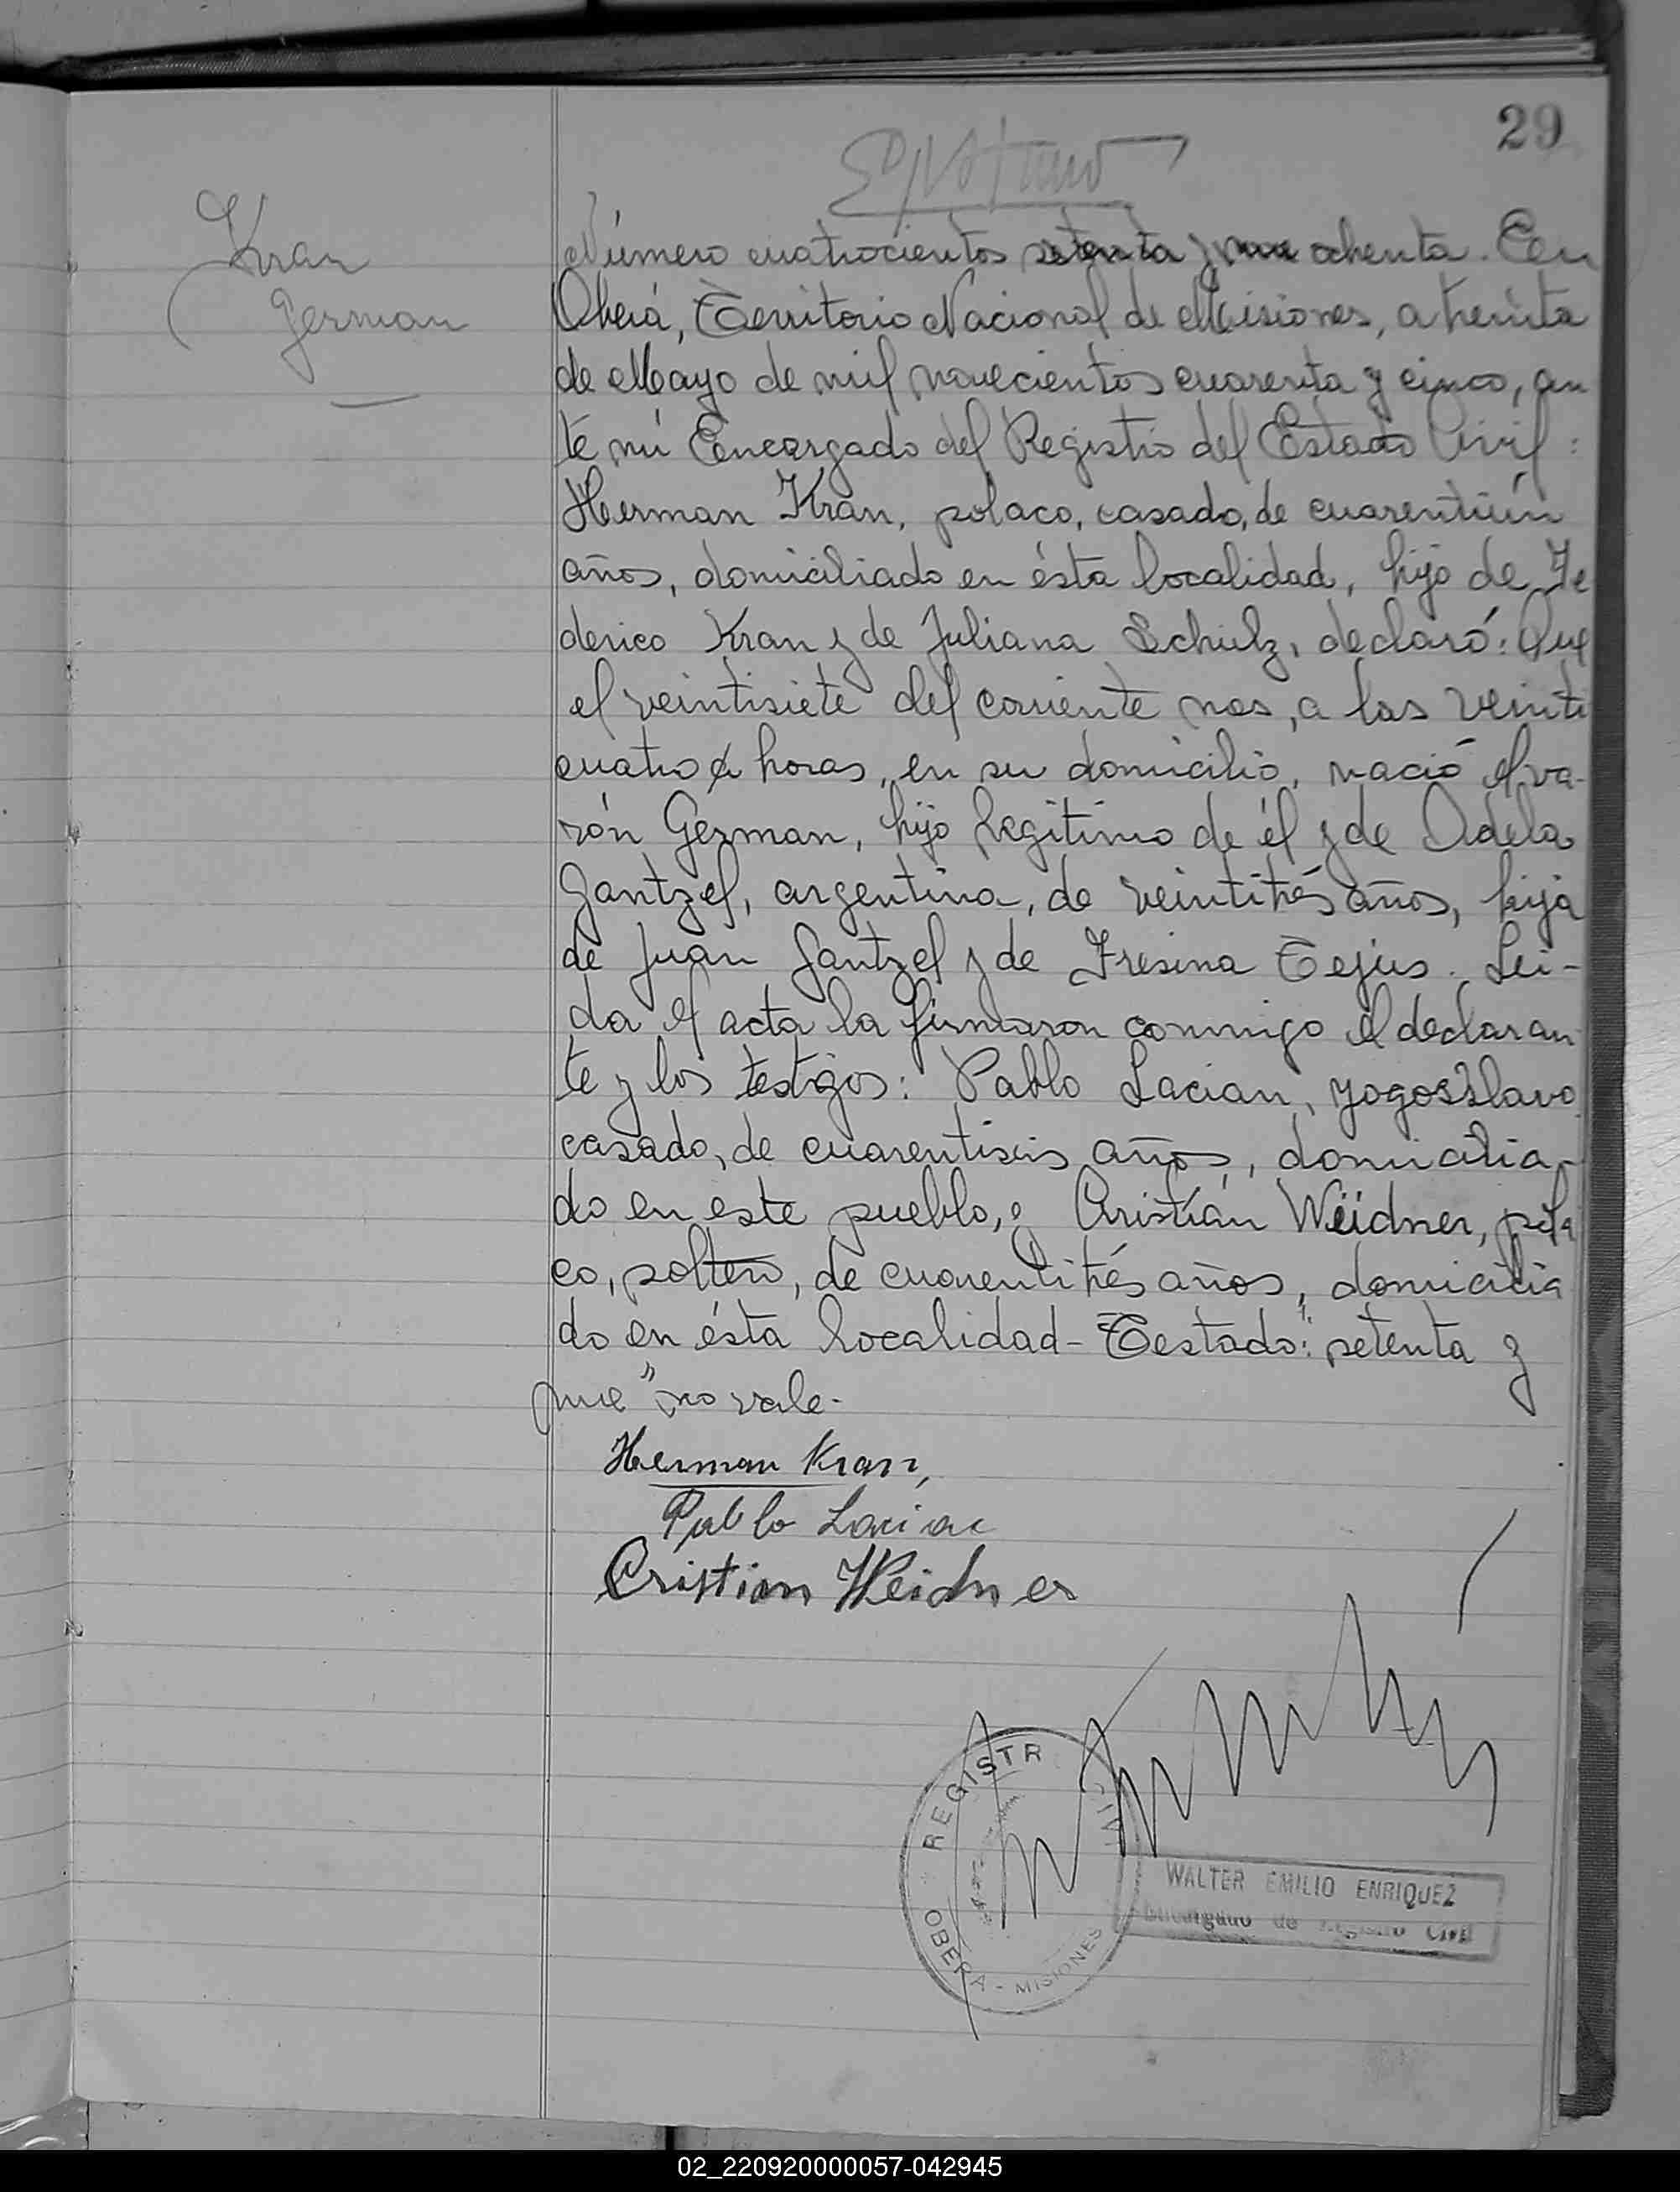 29
Kran
German
Número cuatrocientos setenta y nue ochenta. En
Oberá, Territorio Nacional de Misiones, a treinta
de Mayo de mil novecientos cuarenta y cinco, an
te mi Encargado del Registro del Estado Civil:
Herman Kran, polaco, casado, de cuarentiún
años, domiciliado en ésta localidad, hijo de Fe
derico Kran y de Juliana Schulz, declaró: Que
el veintisiete del corriente mes, a las veinti
cuatro horas, en su domicilio, nació el va-
rón German, hijo legitimo de él y de Adela
Jantzel, argentina, de veintitrés años, hija
de Juan Jantzel y de Fresina Tejus. Lei-
da el acta la firmaron conmigo el declaran
te y los testigos: Pablo Lacian, yogoslavo
casado, de cuarentiseis años, domicilia-
do en este pueblo, y Cristián Weidner, pola
co, soltero, de cuarentitrés años, domicilia
do en ésta localidad - Testado: "setenta y
nue" no vale.-
Herman Kran,
Pablo Laciac
Cristian Weidner
REGISTR CIVI
OBERA - MISIONES
WALTER EMILIO ENRIQUEZ
Encargado de Registro Civil
02_220920000057-042945